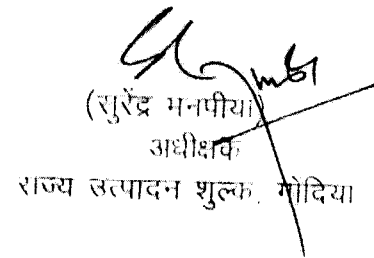 (सुरेंद्र मनपीया)
अधीक्षक
राज्य उत्पादन शुल्क, गोंदिया